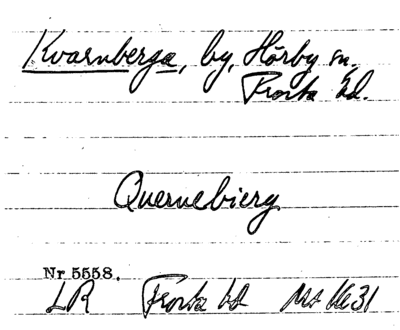 Kvarnberga, by, Hörby sn,
Frosta hd.
Quernebierg
Nr 5558.
LR Frosta hd Ms